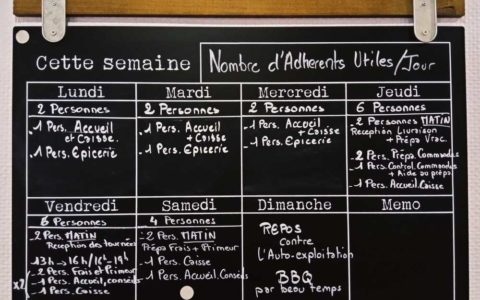 Cette semaine
Nombre d'Adherents Utiles/Jour
Lundi
2 Personnes
- 1 Pers. Accueil
et Caisse.
- 1 Pers. Epicerie
Mardi
2 Personnes
- 1 Pers. Accueil
+ Caisse
- 1 Pers. Epicerie
Mercredi
2 Personnes
- 1 Pers. Accueil
+ Caisse
- 1 Pers. Epicerie
Jeudi
6 Personnes
- 2 Personnes MATIN
Reception Livraison
+ Prépa Vrac.
- 2 Pers. Prépa. Commandes
- 1 Pers. Control. Commandes
+ Aide au prépa.
- 1 Pers. Accueil. Caisse
Vendredi
6 Personnes
- 2 Pers. MATIN
Reception des tournées
13h → 16h / 16h - 19h
x2
- 2 Pers. Frais et Primeur
- 1 Pers. Accueil, conseils
- 1 Pers. Caisse
Samedi
4 Personnes
- 2 Pers. MATIN
Prépa Frais + Primeur
- 1 Pers. Caisse
- 1 Pers. Accueil. Conseils
Dimanche
REPOS
contre
l'Auto-exploitation
BBQ
par beau temps
Memo